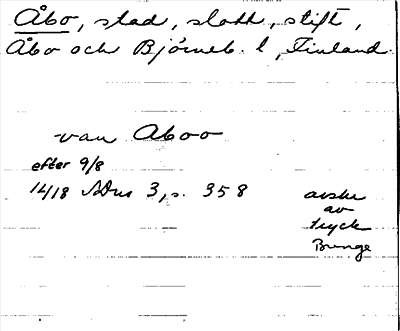 Åbo, stad, slott, stift,
Åbo och Björneb. l, Finland.
van Aboo
efter 9/8
1418 SDns 3, s. 358
avskr
av
tryck
Bunge